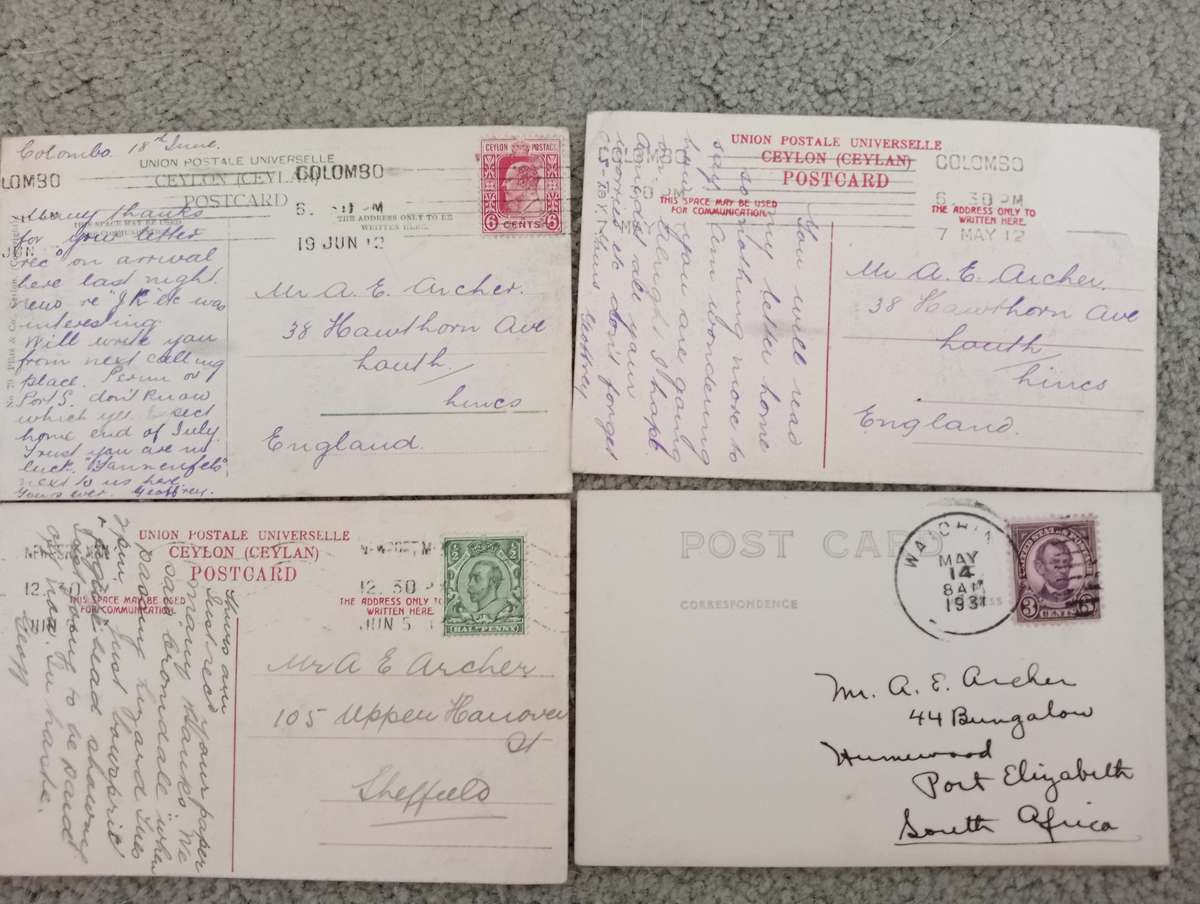 Colombo 18th June.
UNION POSTALE UNIVERSELLE
CEYLON (CEYLAN)
POSTCARD
THIS SPACE MAY BE USED
THE ADDRESS ONLY TO BE
WRITTEN HERE.
LOMBO
COLOMBO
19 JUN 12
CEYLON POSTAGE
6 CENTS 6
Many thanks
for your letter
rec'd on arrival
here last night.
news re
interesting
Will write you
from next calling
place. Perim or
Port S. don't know
which yet. Expect
home end of July.
Trust you are in
luck. "Tannenfels"
next to us here
Yours ever. Geoffrey.
Mr A. E. Archer.
38 Hawthorn Ave
Louth
Lincs
England.
UNION POSTALE UNIVERSELLE
CEYLON (CEYLAN)
POSTCARD
THIS SPACE MAY BE USED
FOR COMMUNICATION.
THE ADDRESS ONLY TO
WRITTEN HERE.
COLOMBO
6. 30 PM
7 MAY 12
You will read
my letter home
so nothing more to
say. Am wondering
how you are going
on. Alright I hope
all your
etc don't forget
Geoffrey
Mr A. E. Archer.
38 Hawthorn Ave
Louth
Lincs
England.
UNION POSTALE UNIVERSELLE
CEYLON (CEYLAN)
POSTCARD
THIS SPACE MAY BE USED
FOR COMMUNICATION.
THE ADDRESS ONLY TO
WRITTEN HERE.
12. 30 P
JUN 5
HALF PENNY
Just rec'd your paper
many thanks. We
saw "Bromdale" when
passing
Just
head
going to be paid
off now. In haste.
Geoff
Mr A E Archer
105 Upper Hanover
St
Sheffield
POST CARD
CORRESPONDENCE
MAY
14
8 AM
1931
UNITED STATES POSTAGE
3 CENTS 3
Mr. A. E. Archer
44 Bungalow
Humewood
Port Elizabeth
South Africa